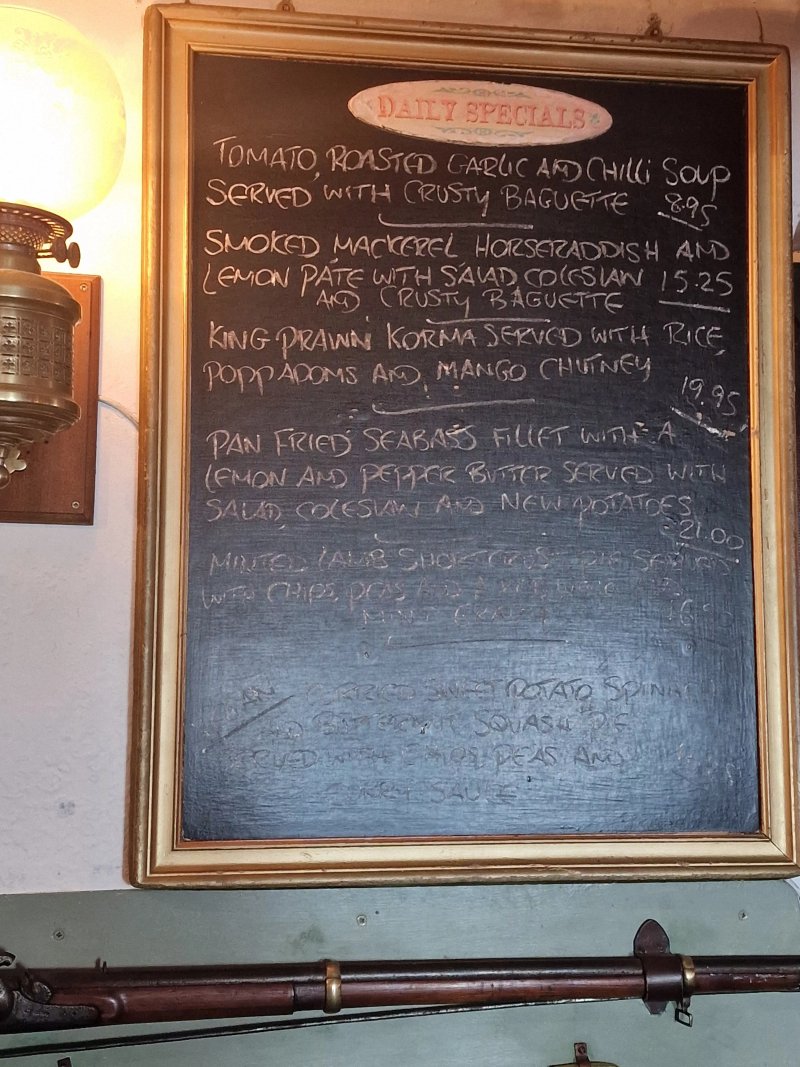 DAILY SPECIALS
TOMATO, ROASTED GARLIC AND CHILLI SOUP
SERVED WITH CRUSTY BAGUETTE 8.95
SMOKED MACKEREL HORSERADDISH AND
LEMON PATE WITH SALAD, COLESLAW 15.25
AND CRUSTY BAGUETTE
KING PRAWN KORMA SERVED WITH RICE,
POPPADOMS AND MANGO CHUTNEY
19.95
PAN FRIED SEABASS FILLET WITH A
LEMON AND PEPPER BUTTER SERVED WITH
SALAD, COLESLAW AND NEW POTATOES
21.00
MINTED LAMB SHORTCRUST PIE SERVED
WITH CHIPS, PEAS AND
MINT GRAVY
CURRIED SWEET POTATO, SPINACH
AND BUTTERNUT SQUASH PIE
SERVED WITH CHIPS, PEAS AND
CURRY SAUCE